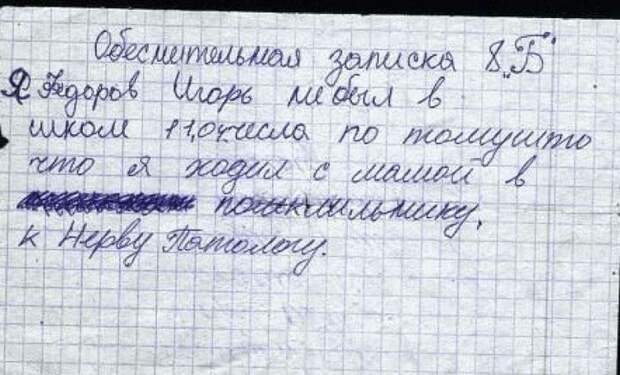 Обеснительная записка 8 „Б"
Я Федоров Игорь не был в
школе 11,04 числа по томушто
что я ходил с мамой в
к Нерву Патологу.